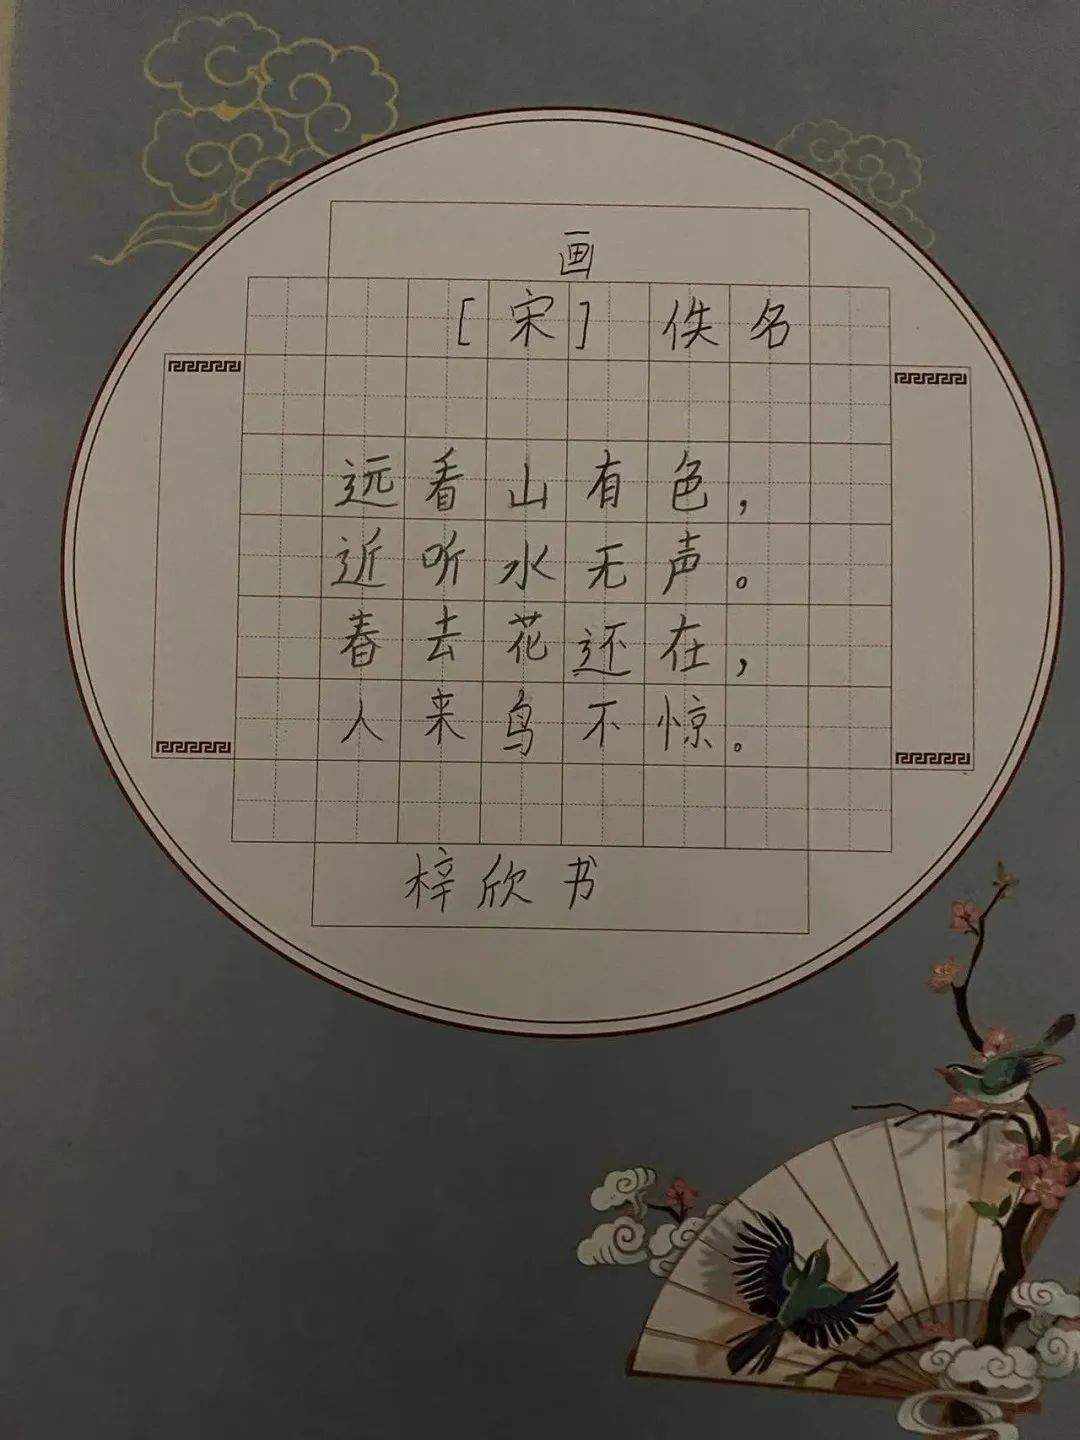 画
[宋] 佚名
远看山有色，
近听水无声。
春去花还在，
人来鸟不惊。
梓欣书